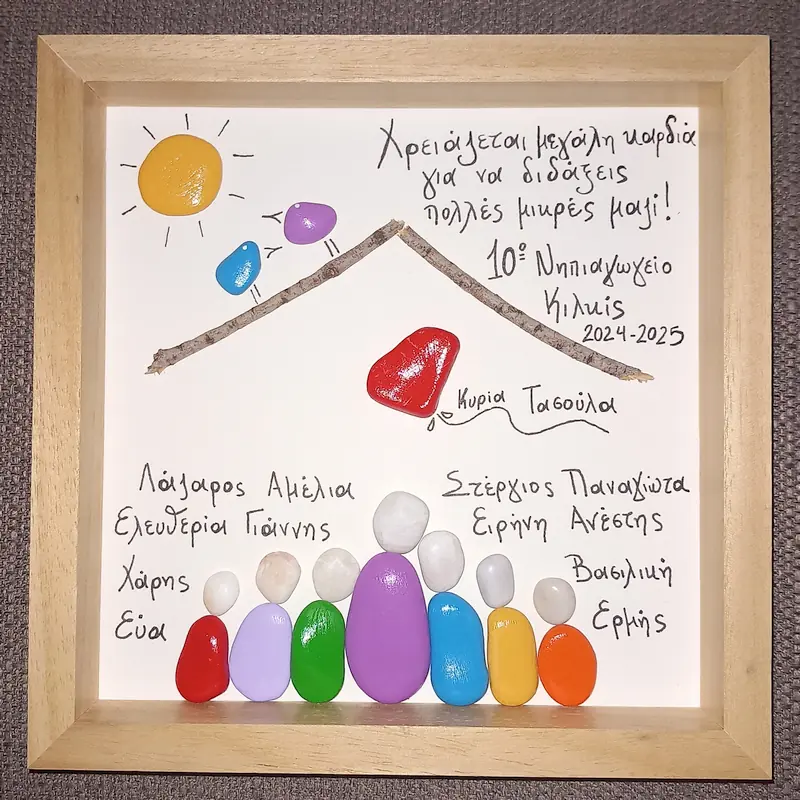 Χρειάζεται μεγάλη καρδιά
για να διδάξεις
πολλές μικρές μαζί!
10º Νηπιαγωγείο
Κιλκίς
2024-2025
Κυρία Τασούλα
Λάζαρος Αμέλια
Ελευθερία Γιάννης
Χάρης
Εύα
Στέργιος Παναγιώτα
Ειρήνη Ανέστης
Βασιλική
Ερμής